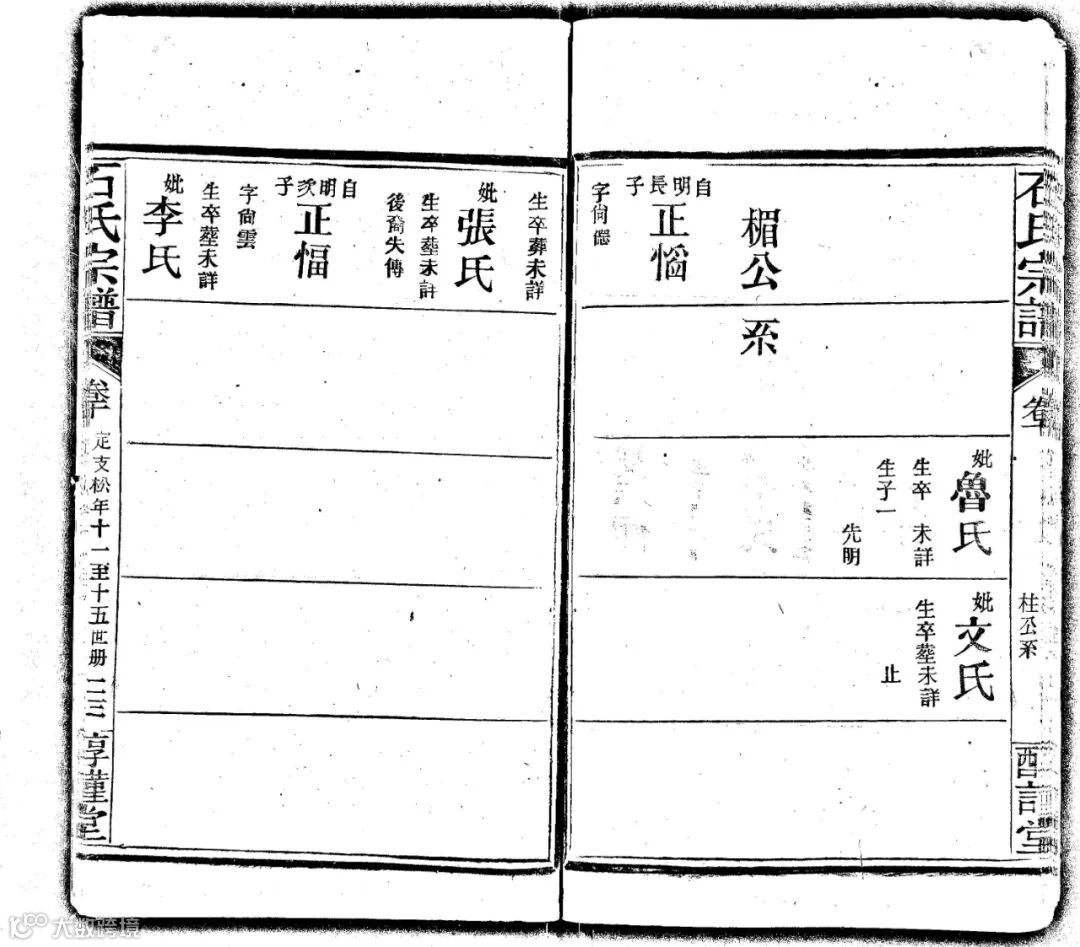 石氏宗譜
桂公系
妣
魯氏
生卒 未詳
生子一
先明
妣
文氏
生卒塟未詳
止
楣公系
自明長子
正惱
字尙德
生卒葬未詳
妣
張氏
生卒塟未詳
後裔失傳
自明次子
正愊
字尙雲
生卒塟未詳
妣
李氏
石氏宗譜
定支松年十一至十五世册
二三
大数跨境